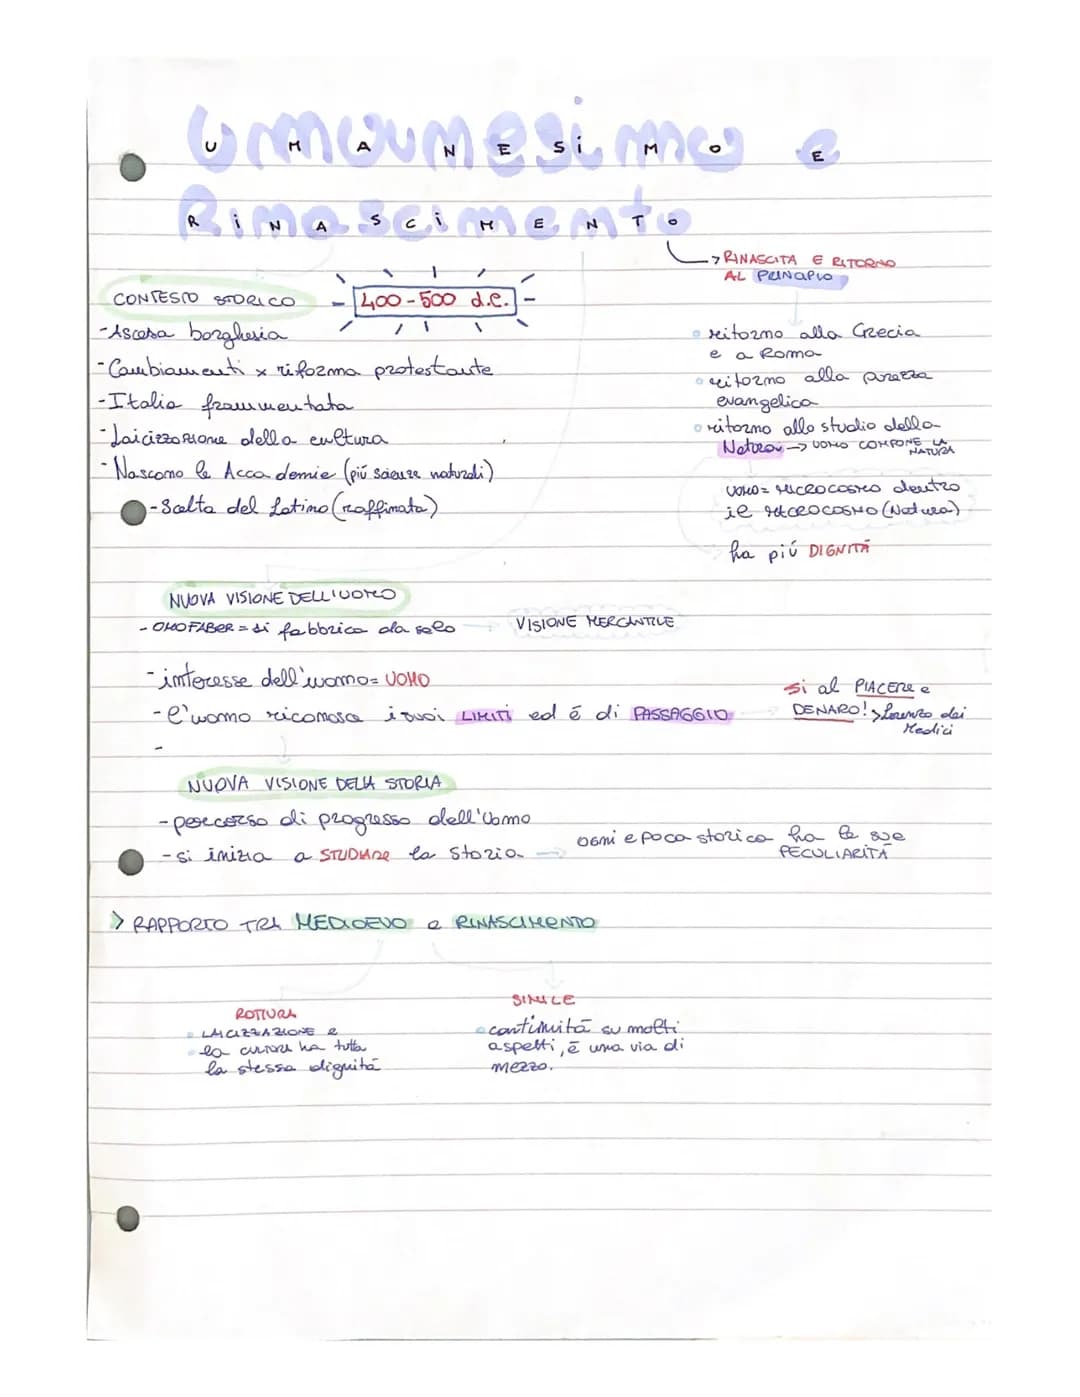 UMANESIMO E
RINASCIMENTO
→ RINASCITA E RITORNO
AL PRINCIPIO
CONTESTO STORICO
400-500 d.C.
- Ascesa borghesia
- Cambiamenti x riforma protestante
- Italia frammentata
- Laicizzazione della cultura
- Nascono le Accademie (più scienze naturali)
- Scelta del Latino (raffinata)
• ritorno alla Grecia
e a Roma
• ritorno alla purezza
evangelica
• ritorno allo studio della
Natura → UOMO COMPONE LA
NATURA
UOMO = MICROCOSMO dentro
il MACROCOSMO (Natura)
ha più DIGNITÀ
NUOVA VISIONE DELL'UOMO
- OMO FABER = si fabbrica da solo → VISIONE MERCANTILE
- interesse dell'uomo = UOMO
- l'uomo riconosce i suoi LIMITI ed é di PASSAGGIO →
-
si al PIACERE e
DENARO! > Lorenzo dei
Medici
NUOVA VISIONE DELLA STORIA
- percorso di progresso dell'Uomo
- si inizia a STUDIARE la storia →
ogni epoca storica ha le sue
PECULIARITÀ
> RAPPORTO TRA MEDIOEVO e RINASCIMENTO
ROTTURA
• LAICIZZAZIONE e
• la cultura ha tutta
la stessa dignità
SIMILE
• continuità su molti
aspetti, è una via di
mezzo.